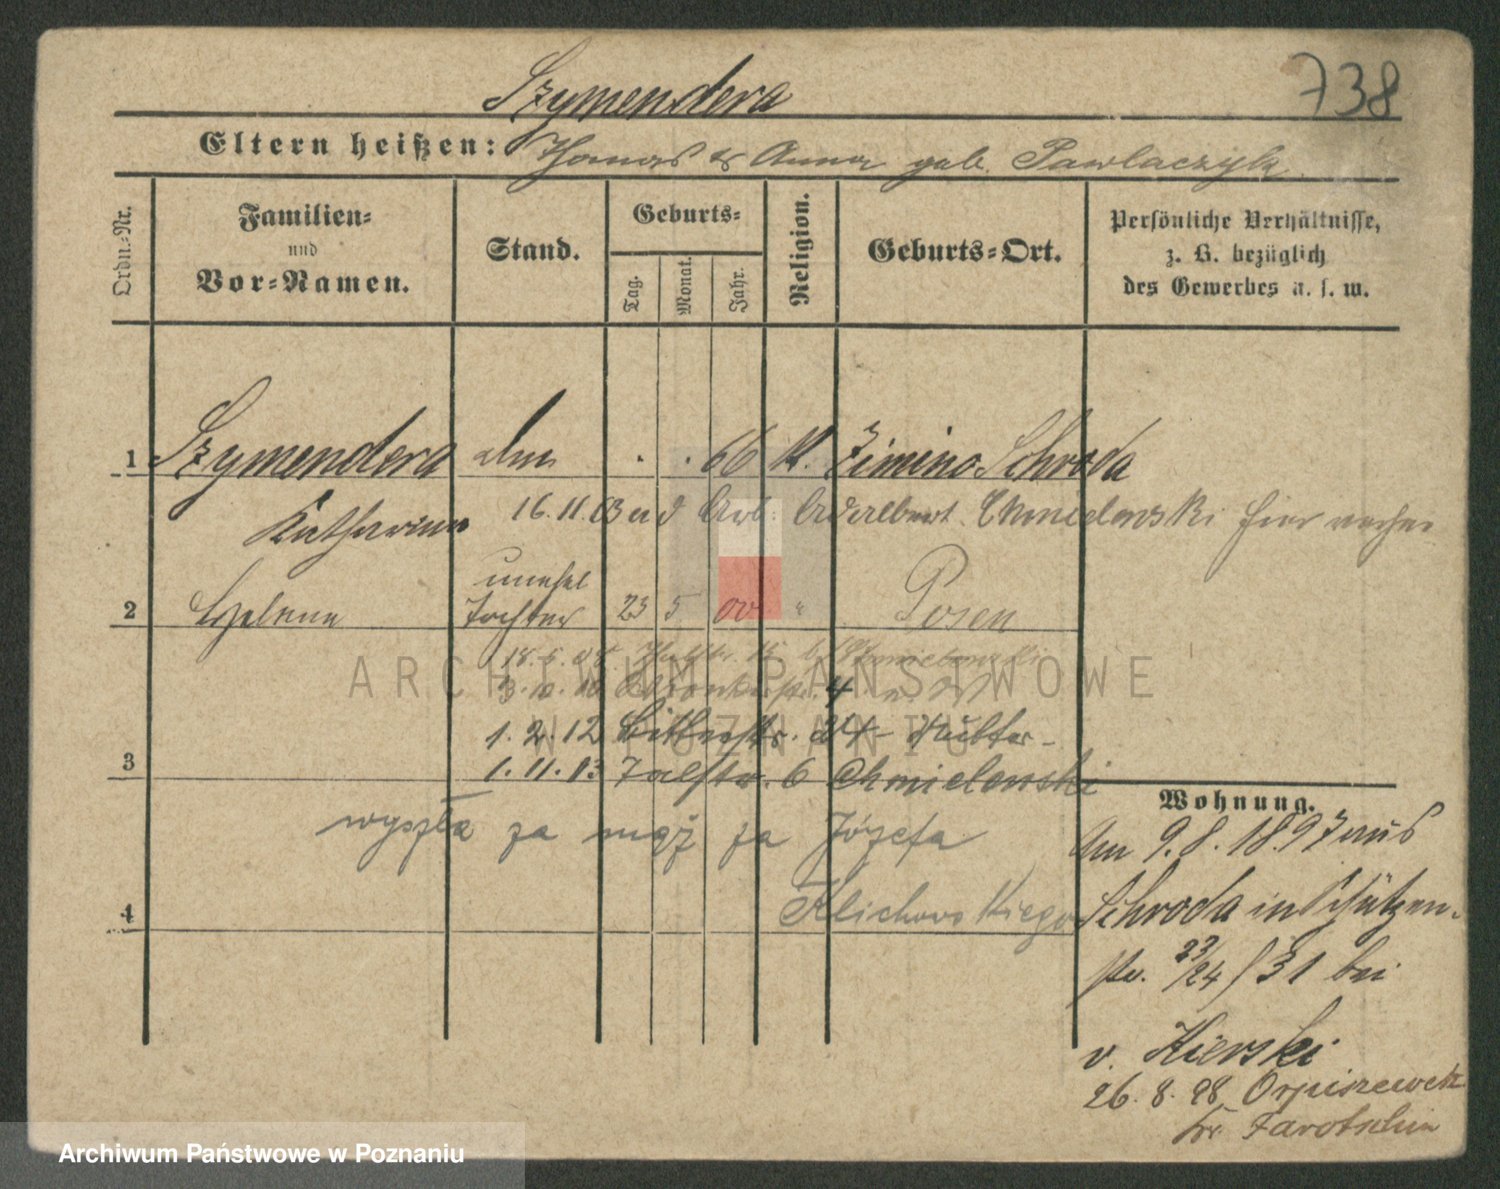 738
Szymendera
Eltern heißen: Thomas & Anna geb. Pawlaczyk
Ordn.-Nr.
Familien-
und
Vor-Namen.
Stand.
Geburts-
Tag.
Monat.
Jahr.
Religion.
Geburts-Ort.
Persönliche Verhältnisse,
z. B. bezüglich
des Gewerbes u. s. w.
1 Szymendera . . 66 K. Zimino Schroda
Katharina 16.11.03 Arb. Adalbert Chmielewski
unehel
2 Helena Tochter 23 5 00 " Posen
18.5.08.
3.10.10 4
1.2.12 24 Mutter
3 1.11.13 Talstr. 6 Chmielewski
wyszła za mąż za Józefa
4 Klichowskiego
Wohnung.
Am 9.8.1897 aus
Schroda in Schützen-
str. 23/24 / 31 bei
v. Kierski
26.8.98 Orpiszewek
Kr. Jarotschin
ARCHIWUM PAŃSTWOWE
W POZNANIU
Archiwum Państwowe w Poznaniu